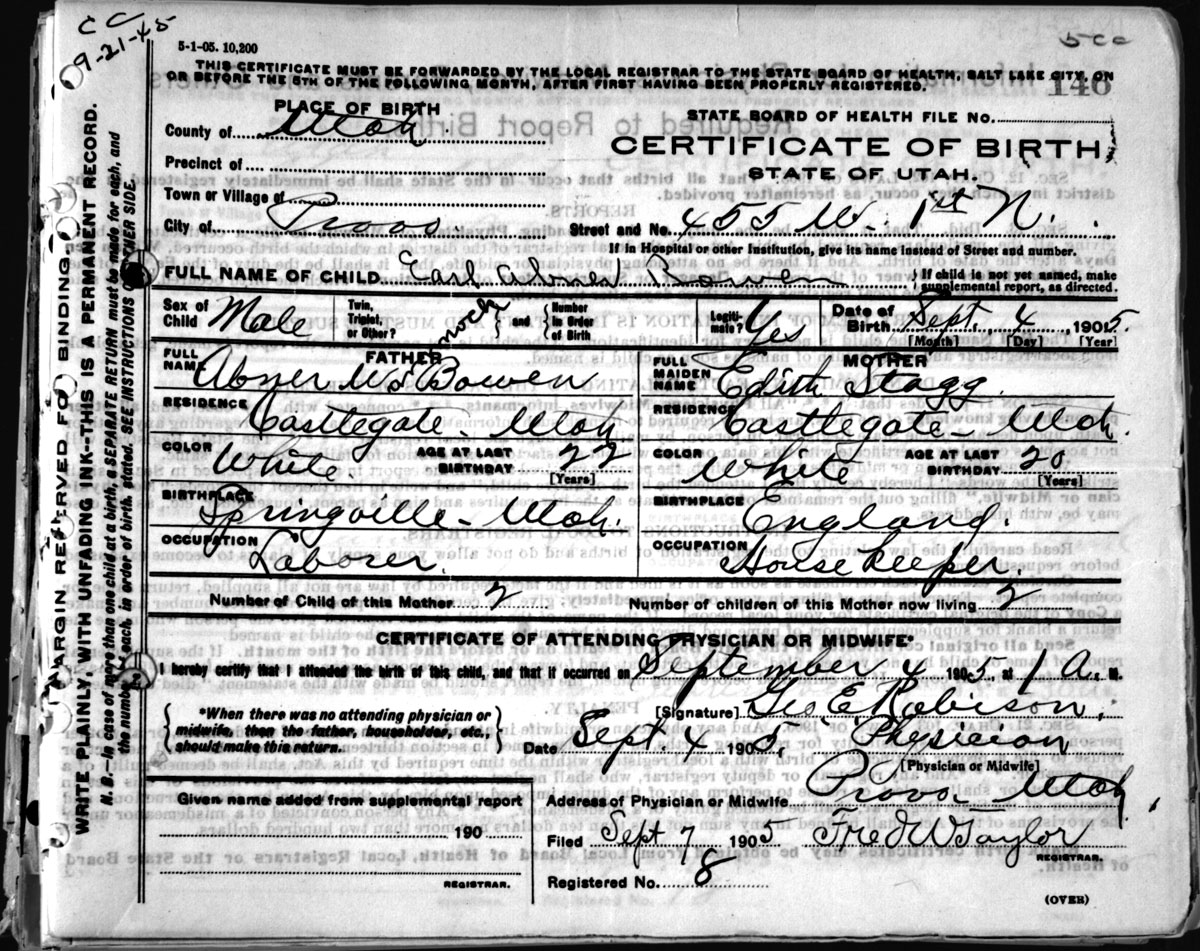 CC
9-21-45
5 c c
5-1-05. 10,200
THIS CERTIFICATE MUST BE FORWARDED BY THE LOCAL REGISTRAR TO THE STATE BOARD OF HEALTH, SALT LAKE CITY, ON
OR BEFORE THE 5TH OF THE FOLLOWING MONTH, AFTER FIRST HAVING BEEN PROPERLY REGISTERED.
146
PLACE OF BIRTH
STATE BOARD OF HEALTH FILE No.
County of Utah
CERTIFICATE OF BIRTH
Precinct of
STATE OF UTAH.
Town or Village of
City of Provo. Street and No. 455 W. 1st N.
If in Hospital or other Institution, give its name instead of Street and number.
FULL NAME OF CHILD Earl Abner { If child is not yet named, make
supplemental report, as directed.
Sex of Child Male Twin, Triplet, or Other? and { Number in Order of Birth Legiti-mate? Yes Date of Birth Sept. 4 1905.
[Month] [Day] [Year]
FATHER
FULL NAME Abner Bowen
MOTHER
FULL MAIDEN NAME Edith Stagg.
RESIDENCE Castlegate - Utah
RESIDENCE Castlegate - Utah.
COLOR White. AGE AT LAST BIRTHDAY 22 [Years]
COLOR White AGE AT LAST BIRTHDAY 20 [Years]
BIRTHPLACE Springville - Utah.
BIRTHPLACE England.
OCCUPATION Laborer.
OCCUPATION House keeper.
Number of Child of this Mother 2 Number of children of this Mother now living 2
CERTIFICATE OF ATTENDING PHYSICIAN OR MIDWIFE*
I hereby certify that I attended the birth of this child, and that it occurred on September 4 1905, at 1 A. M.
{ *When there was no attending physician or
midwife, then the father, householder, etc.,
should make this return. }
[Signature] Geo. E. Robison.
Date Sept. 4 1905, Physician
[Physician or Midwife]
Given name added from supplemental report
Address of Physician or Midwife Provo Utah.
190
Filed Sept 7 1905 Fred W Taylor
REGISTRAR.
REGISTRAR.
Registered No. 8
(OVER)
MARGIN RESERVED FOR BINDING.
WRITE PLAINLY, WITH UNFADING INK--THIS IS A PERMANENT RECORD.
N. B.--In case of more than one child at a birth, a SEPARATE RETURN must be made for each, and
the number of each, in order of birth, stated. SEE INSTRUCTIONS ON OTHER SIDE.